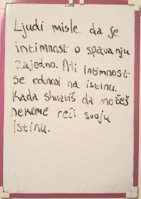 Ljudi misle da je
intimnost o spavanju
zajedno. Ali intimnost
se odnosi na istinu.
Kada shvatiš da možeš
nekome reći svoju
istinu.